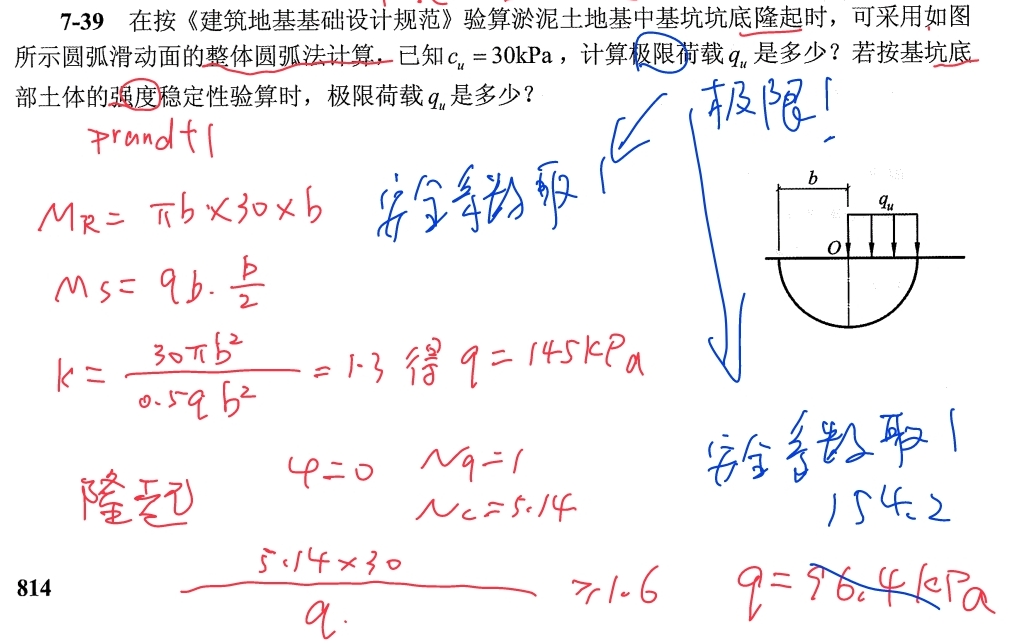 7-39 在按《建筑地基基础设计规范》验算淤泥土地基中基坑坑底隆起时，可采用如图
所示圆弧滑动面的整体圆弧法计算，已知c_u = 30kPa，计算极限荷载 q_u 是多少？若按基坑底
部土体的强度稳定性验算时，极限荷载 q_u 是多少？
极限！
prandtl
安全系数取1
M_R = πb × 30 × b
b
q_u
O
M_S = qb · b/2
k = 30πb²/0.5qb² = 1.3 得 q = 145kPa
安全系数取1
154.2
隆起 φ=0 Nq=1
Nc=5.14
5.14×30/q. ≥1.6 q=96.4kPa
814